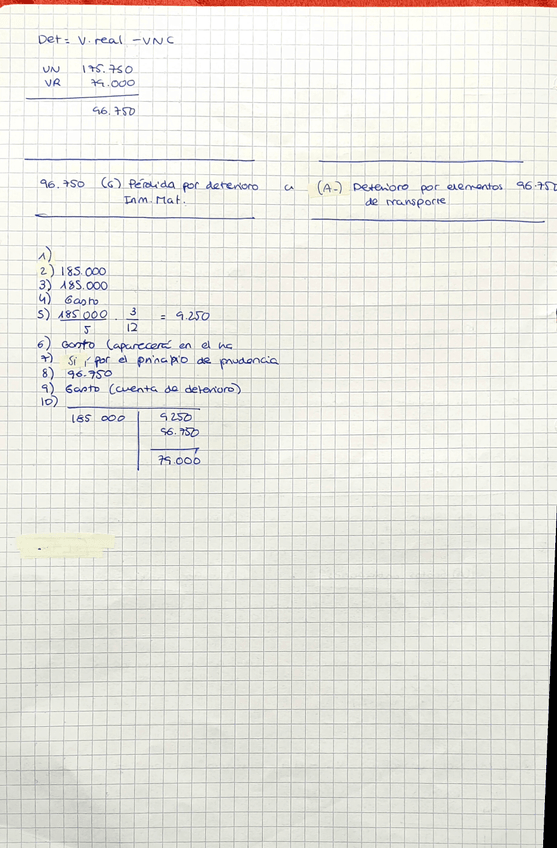 Det = V. real - VNC
VN 175.750
VR 79.000
96.750
96.750 (G) Pérdida por deterioro a (A-) Deterioro por elementos 96.750
Inm. Mat. de transporte
1)
2) 185.000
3) 185.000
4) Gasto
5) 185 000 / 5 · 3 / 12 = 9.250
6) Gasto (aparecerá en el
7) Si, por el principio de prudencia
8) 96.750
9) Gasto (cuenta de deterioro)
10)
185 000 9250
96.750
79.000